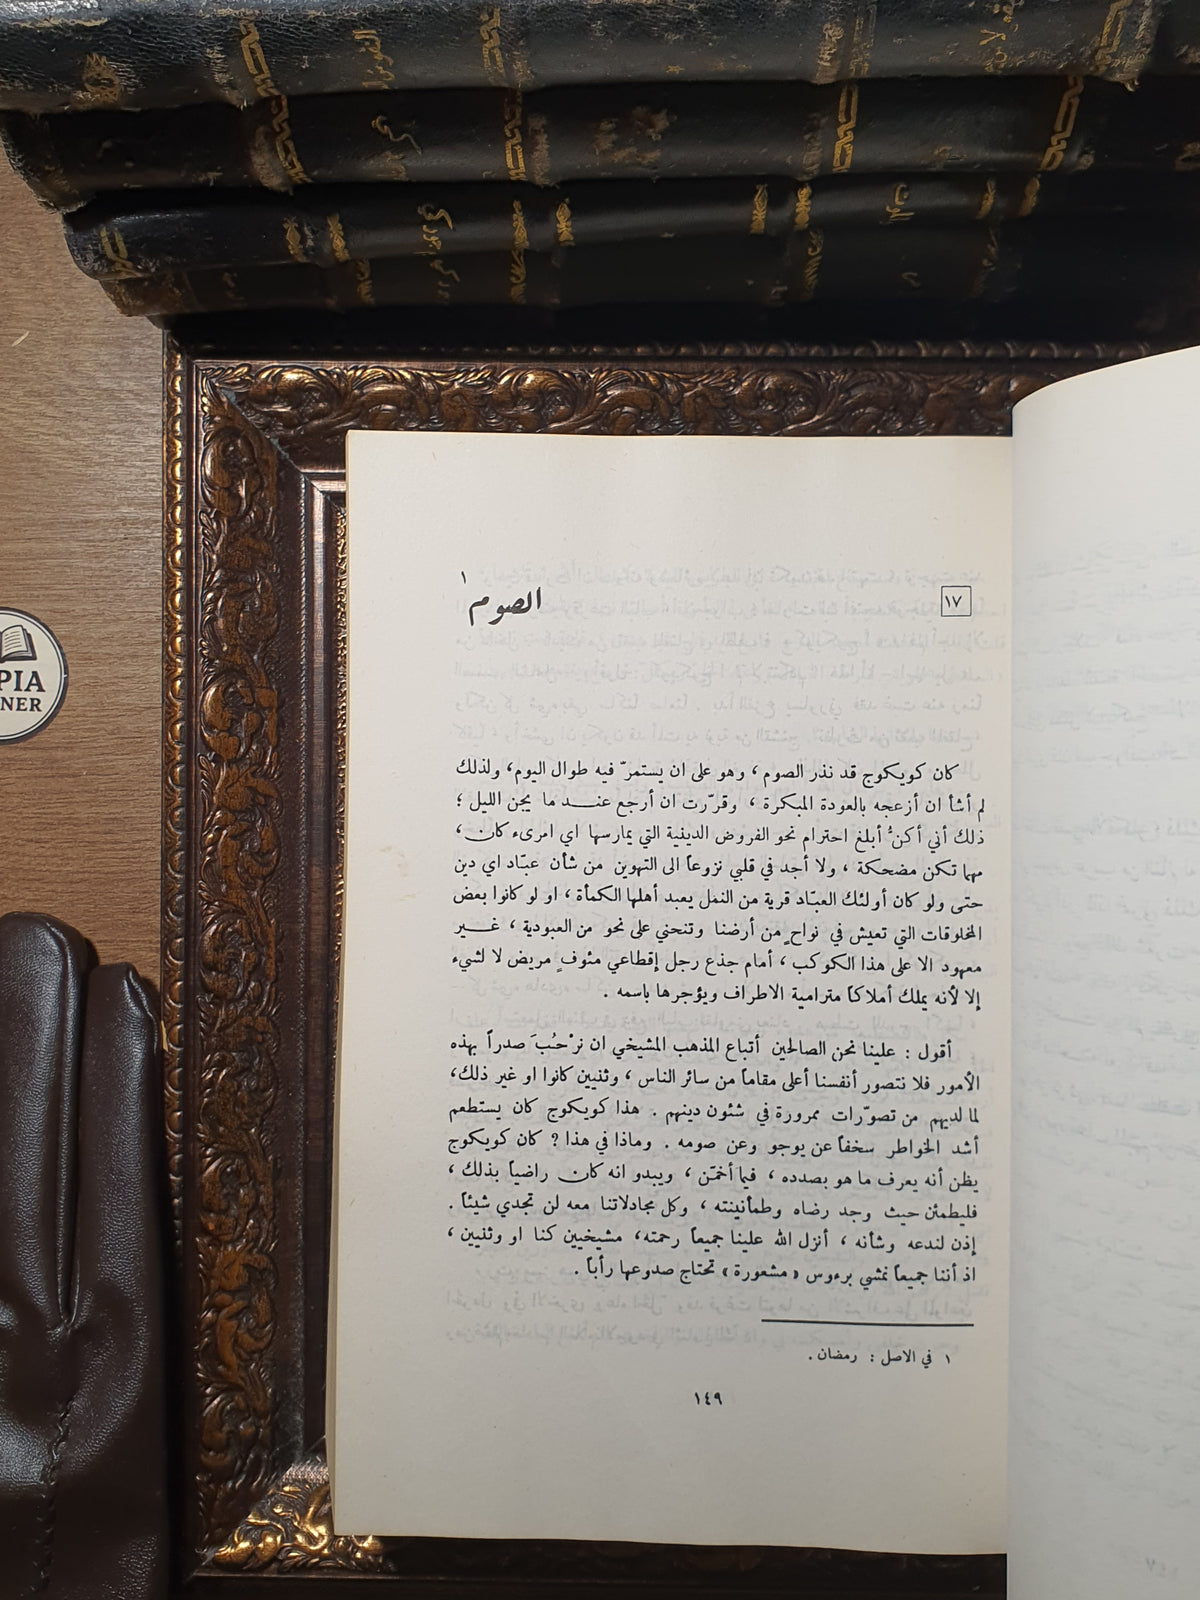 ١٧
الصوم ١
كان كويكوج قد نذر الصوم ، وهو على ان يستمرّ فيه طوال اليوم، ولذلك
لم أشأ ان أزعجه بالعودة المبكرة ، وقرّرت ان أرجع عنـــد ما يجن الليل ؛
ذلك أني أكنُّ أبلغ احترام نحو الفروض الدينية التي يمارسها اي امرىء كان ،
مهما تكن مضحكة ، ولا أجد في قلبي نزوعاً الى التهوين من شأن عبّاد اي دين
حتى ولو كان أولئك العبّاد قرية من النمل يعبد أهلها الكمأة ، او لو كانوا بعض
المخلوقات التي تعيش في نواحٍ من أرضنا وتنحني على نحو من العبودية ، غـــير
معهود الا على هذا الكوكب ، أمام جذع رجل إقطاعي مئوفٍ مريض لا لشيء
إلا لأنه يملك أملاكاً مترامية الاطراف ويؤجرها باسمه .
أقول : علينا نحن الصالحين أتباع المذهب المشيخي ان نرْحُبَ صدراً بهذه
الأمور فلا نتصور أنفسنا أعلى مقاماً من سائر الناس ، وثنيين كانوا او غير ذلك،
لما لديهم من تصوّرات ممرورة في شئون دينهم . هذا كويكوج كان يستطعم
أشد الخواطر سخفاً عن يوجو وعن صومه . وماذا في هذا ? كان كويكوج
يظن أنه يعرف ما هو بصدده ، فيما أخمّن ، ويبدو انه كان راضياً بذلك ،
فليطمئن حيث وجد رضاه وطمأنينته ، وكل مجادلاتنا معه لن تجدي شيئاً .
إذن لندعه وشأنه ، أنزل الله علينا جميعاً رحمته، مشيخيين كنا او وثنيين ،
اذ أننا جميعاً نمشي برءوس « مشعورة » تحتاج صدوعها رأباً .
١ في الاصل : رمضان .
١٤٩
PIA
NER